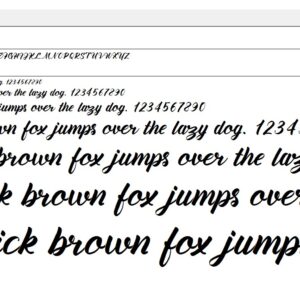 EFGHIJKLMNOPQRSTUVWXYZ
dog. 1234567890
over the lazy dog. 1234567890
jumps over the lazy dog. 1234567890
own fox jumps over the lazy dog. 1234
brown fox jumps over the laz
k brown fox jumps over
ick brown fox jumps